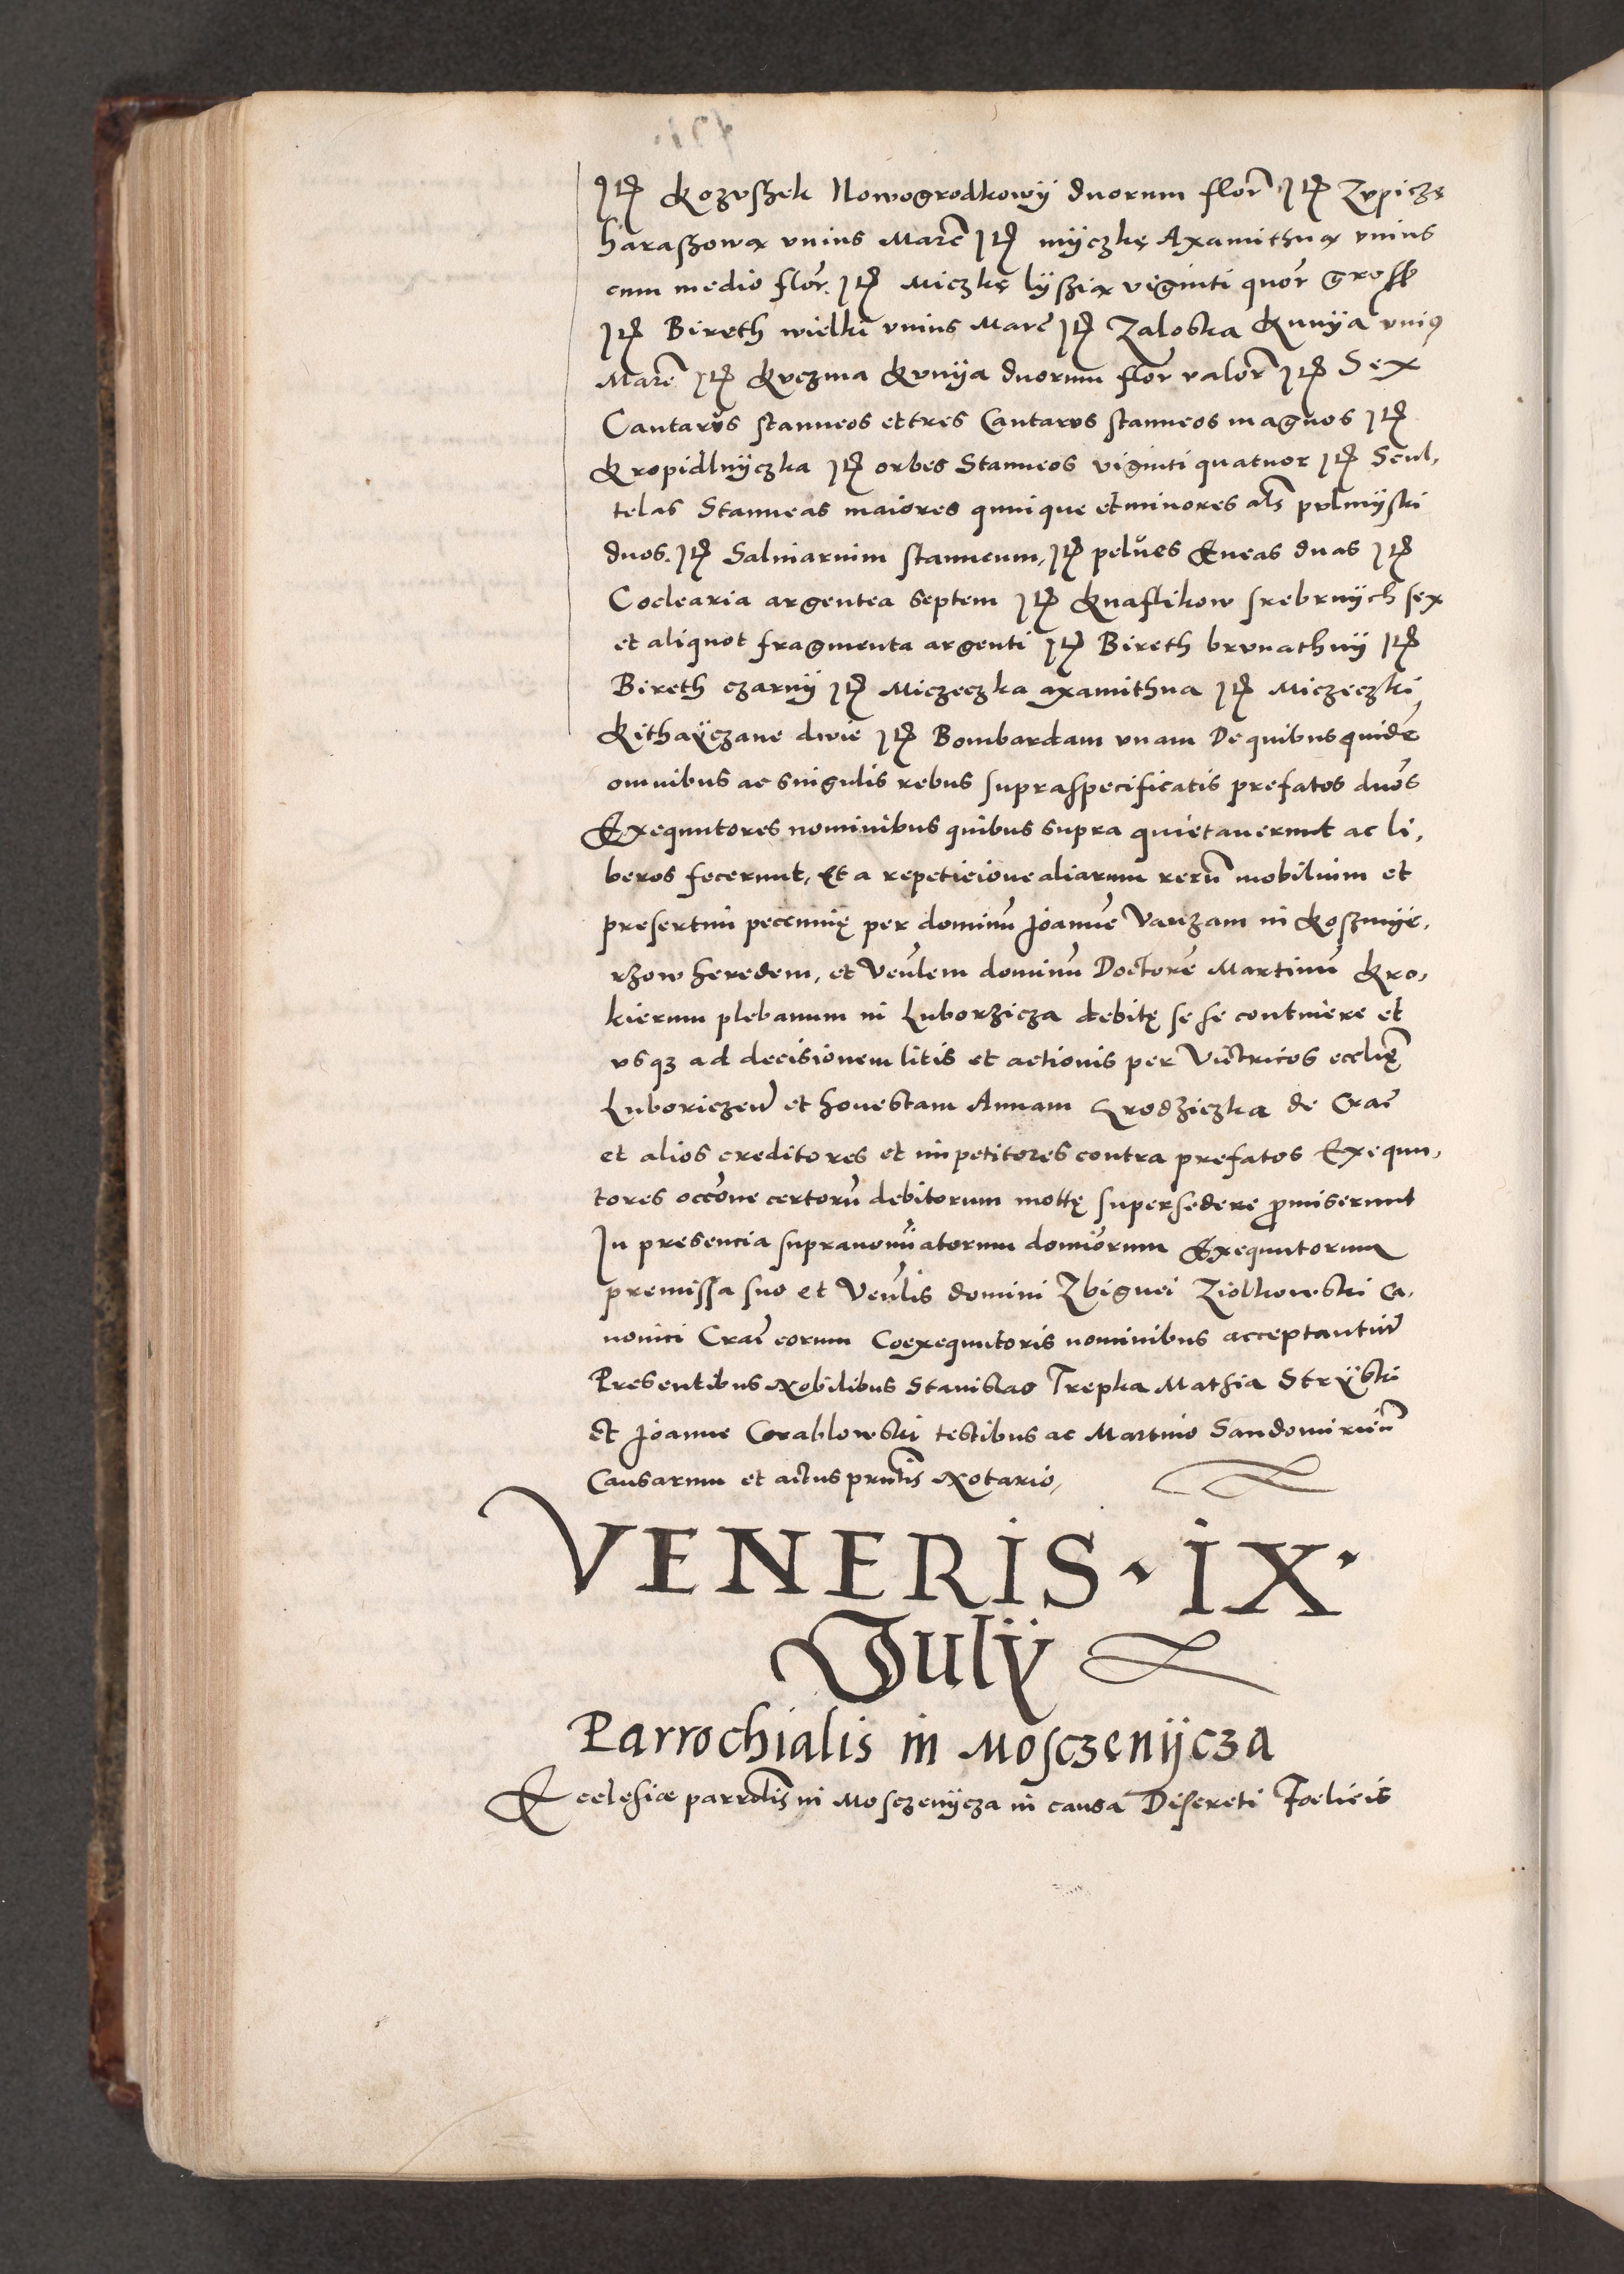 Itē Kozvszek Nowogrodkowij duorum florē Itē Zvpiczę
haraszową vnius Marcē Itē mijczkę Axamithną vnius
cum medio flor. Itē Miczkę lijszią viginti quor gross
Itē Bireth wielki vnius Marc Itē Zaloska Kunija vniꝰ
Marcē Itē Kvczma Kvnija duorum flor valorē Itē Sex
Cantaros stanneos et tres Cantaros stanneos magnos Itē
Kropidlnijczka Itē orbes Stanneos viginti quatuor Itē Scul,
telas Stanneas maiores quinque et minores als pvlmijski
duos. Itē Saliniarium stanneum, Itē pelŭes Eneas duas Itē
Coclearia argentea septem Itē Knaflikow srebrnijch sex
et aliquot fragmenta argenti Itē Bireth brvnathnij Itē
Bireth czarnij Itē Miczeczka axamithna Itē Miczeczki
Kithaÿczane dwie Itē Bombardam vnam De quibus quidē
omnibus ac singulis rebus supraspecificatis prefatos dnōs
Exequutores nominibus quibus supra quietauerunt ac li,
beros fecerunt, Et a repeticione aliarum rerū mobilium et
presertim pecunię per dominū Joannē Vanzam in Koszmÿe,
rzow heredem, et Venlem dominū Doctorē Martinū Kro,
kierum plebanum in Luborzicza debitę sese continere et
vsqꝫ ad decisionem litis et actionis per Victricos eccliē
Luboriczeñ et honestam Annam Grodziczka de Crac
et alios creditores et impetitores contra prefatos Exequu,
tores occōne certorū debitorum motę supersedere ꝓmiserunt
In presencia supranoīatorum dominorum Exequutorum
premissa suo et Venlis domini Zbignei Ziolkowski Ca,
nonici Crac eorum Coexequutoris nominibus acceptantiū
Presentibus Nobilibus Stanislao Trepka Mathia Strÿski
et Joanne Corablowski testibus ac Martino Sandomiriēn
Causarum et actus pnntis Notario,
VENERIS · IX ·
Julÿ
Parrochialis in Mosczenijcza
Ecclesiæ parrolis in Mosczenijcza in causa Discreti Foelicis